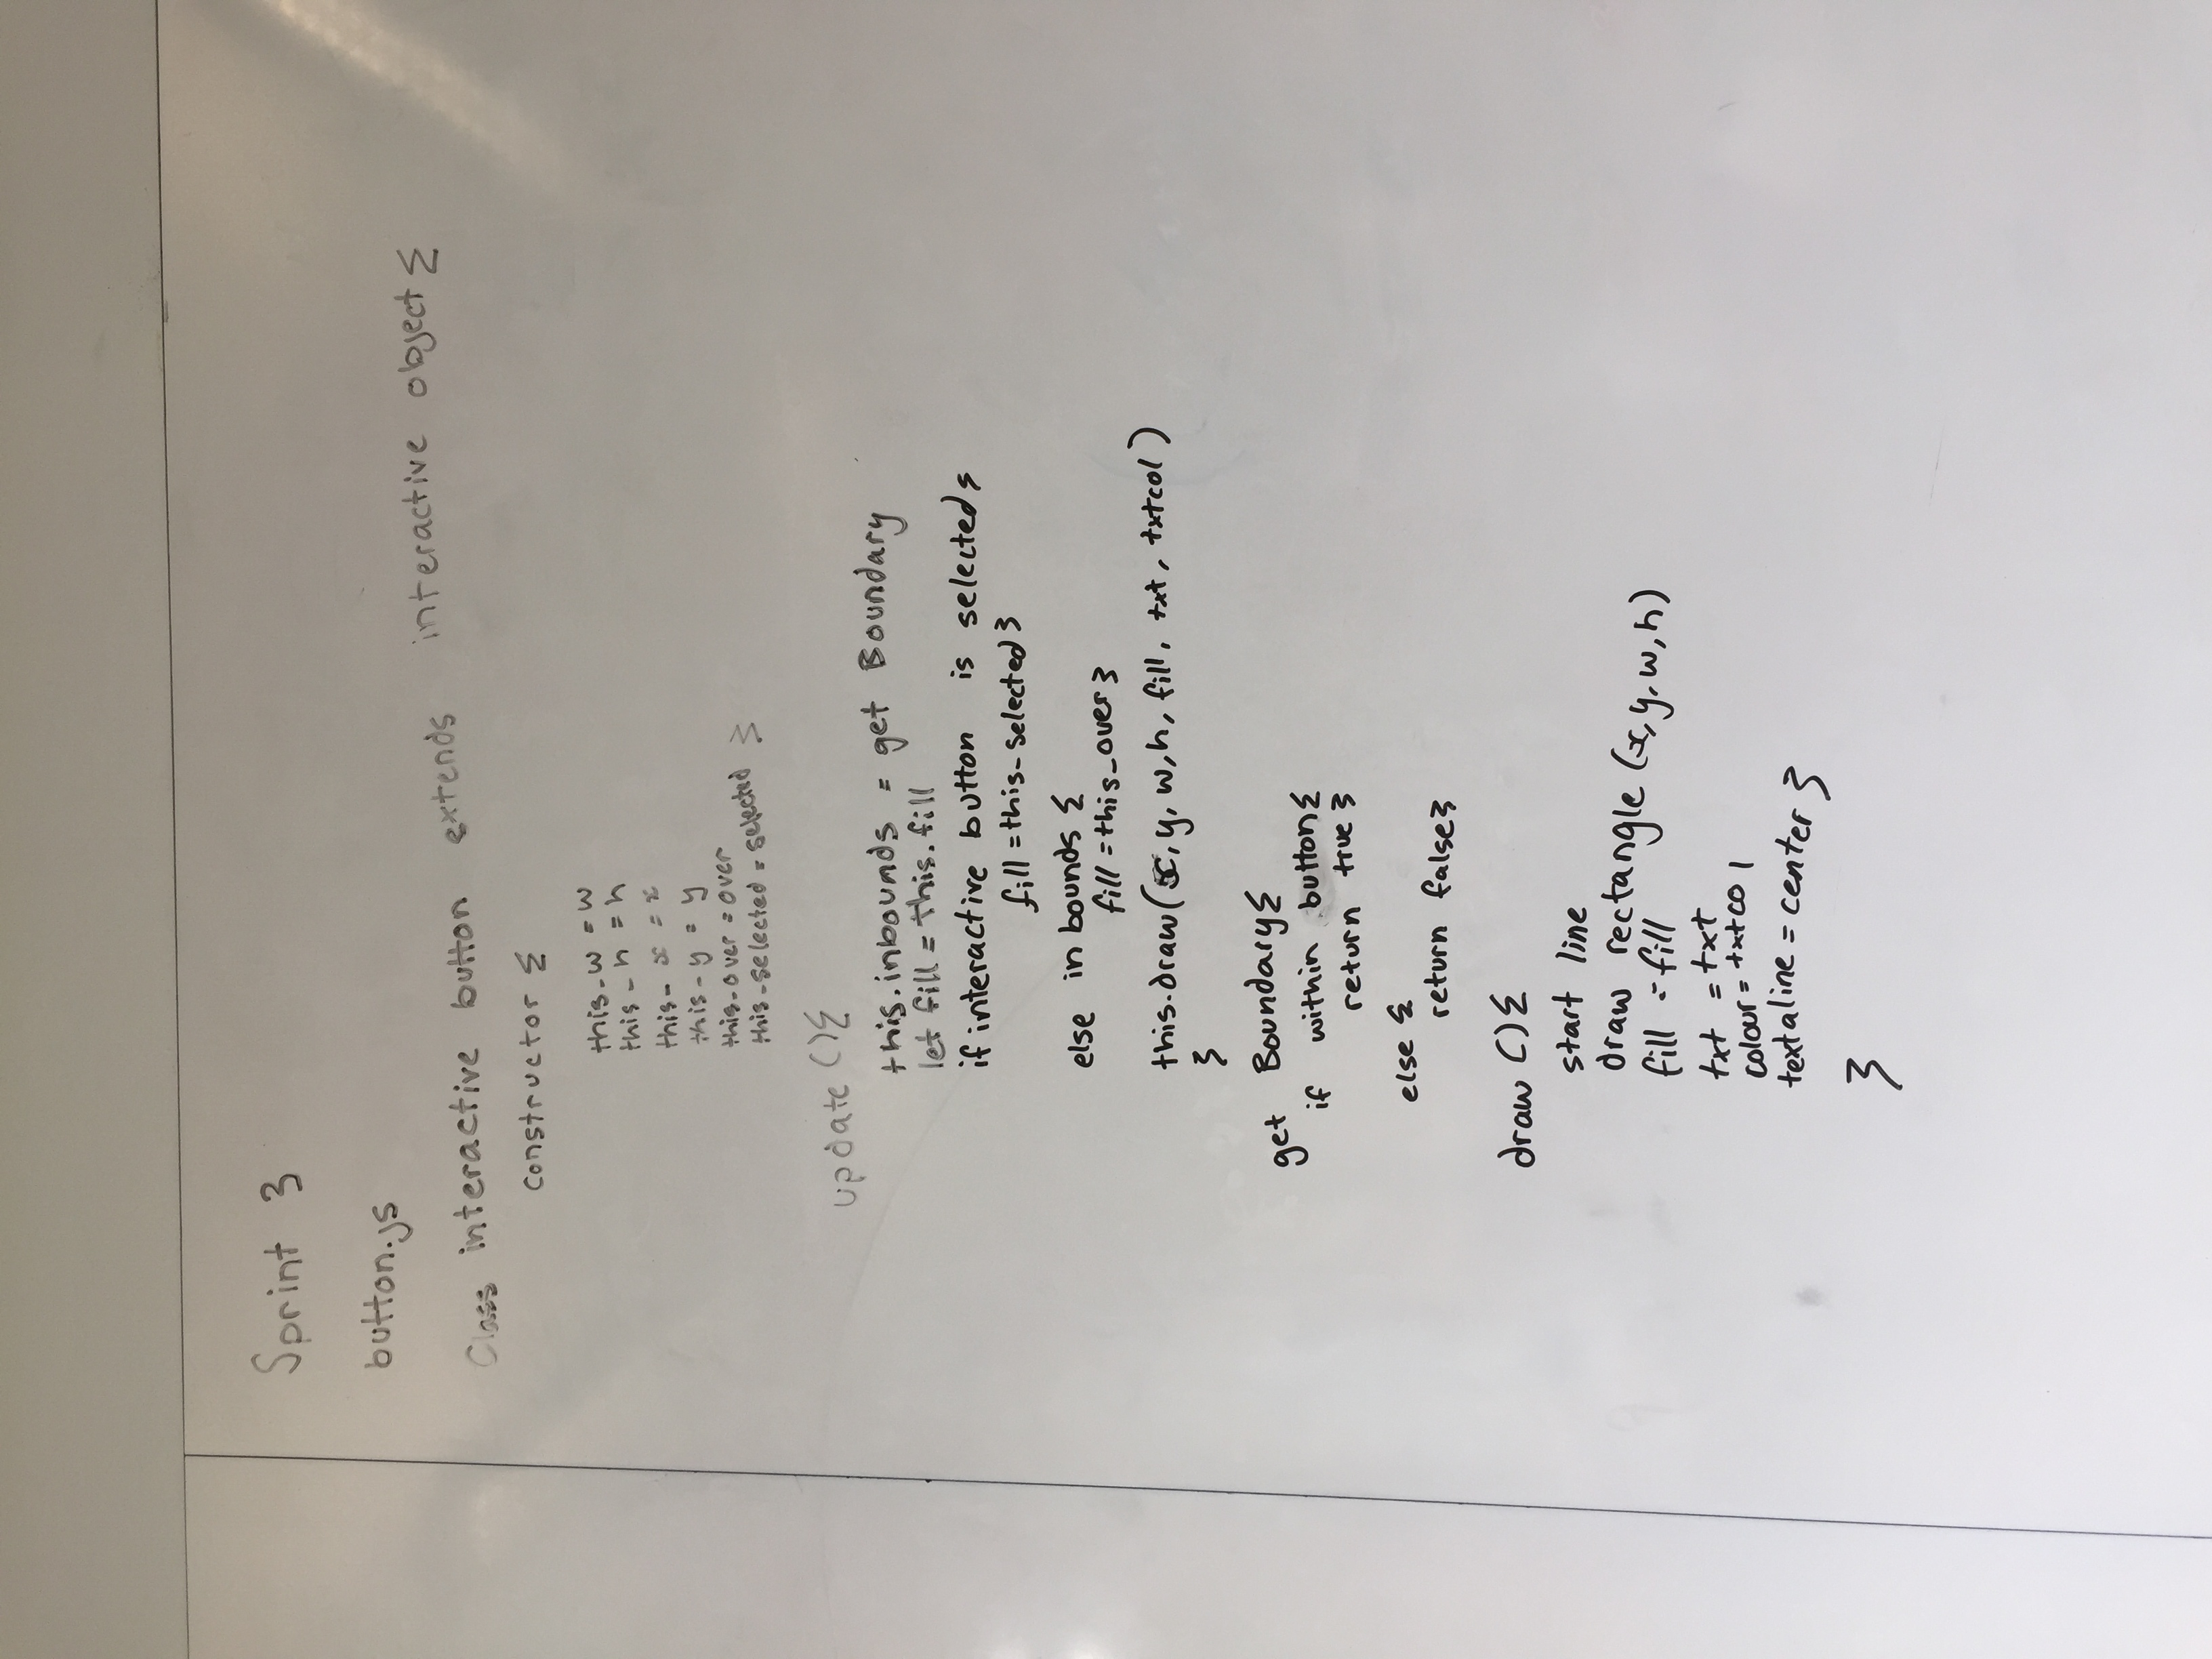 Sprint 3
button.js
Class interactive button extends interactive object {
constructor {
this_w = w
this_h = h
this_x = x
this_y = y
this_over = over
this_selected = selected }
update (){
this.inbounds = get Boundary
let fill = this.fill
if interactive button is selected {
fill = this_selected }
else in bounds {
fill = this_over }
this.draw(x, y, w, h, fill, txt, txtcol)
}
get Boundary {
if within button {
return true }
else {
return false }
draw () {
start line
draw rectangle (x, y, w, h)
fill = fill
txt = txt
colour = txtcol
textaline = center }
}